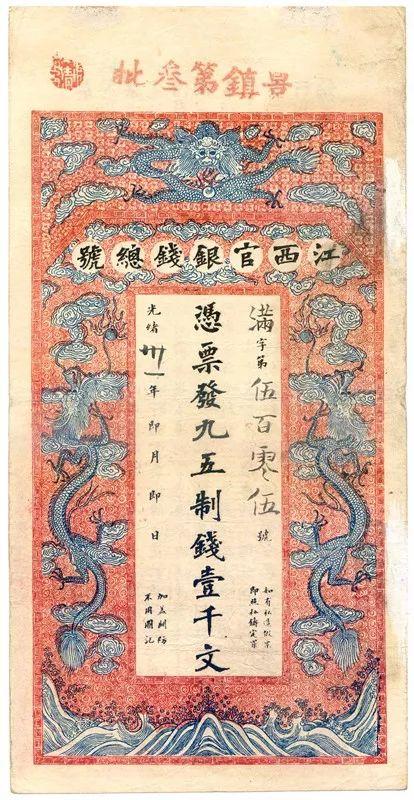 景鎮第叁批
江西官銀錢總號
滿字第伍百零伍號
如有私造假票
即照私鑄定罪
憑票發九五制錢壹千文
光緒卅一年即月即日
加蓋關防
不用圖記